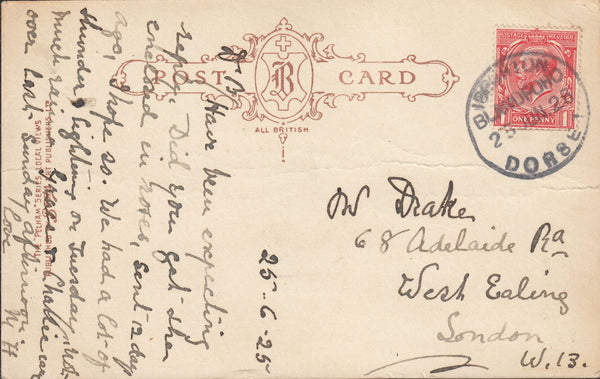 POST CARD
B
ALL BRITISH
POSTAGE REVENUE
ONE PENNY
DORSET
25-6-25
Have been expecting
reply. Did you get the
enclosed in notes, sent 12 days
ago, I hope so. We had a lot of
thunder & lightning on Tuesday, not
much rain. & Charlie came
over last Sunday afternoon.
Love
W Drake
68 Adelaide Rd
West Ealing
London
W.13.
THE PELHAM SERIES REAL VIEWS